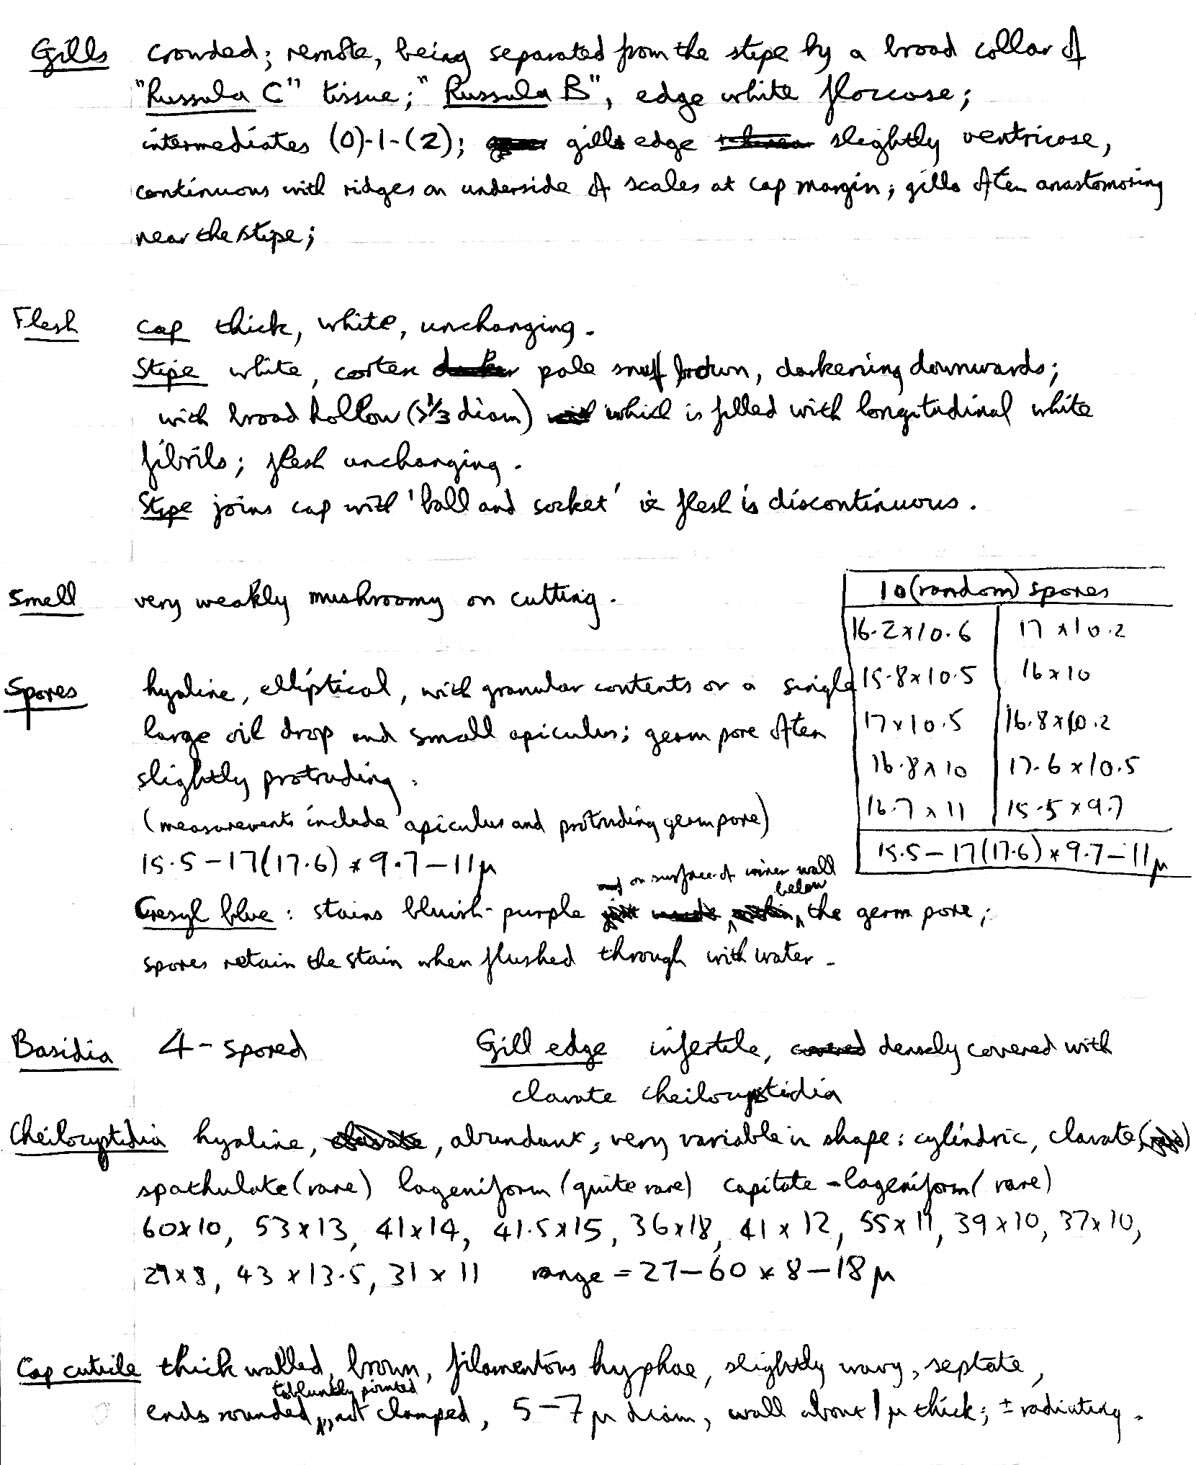 Gills crowded; remote, being separated from the stipe by a broad collar of
"Russula C" tissue; "Russula B", edge white floccose;
intermediates (0)-1-(2); gills edge slightly ventricose,
continuous with ridges on underside of scales at cap margin; gills often anastomosing
near the stipe;
Flesh cap thick, white, unchanging.
Stipe white, cortex pale snuff brown, darkening downwards;
with broad hollow (>1/3 diam) which is filled with longitudinal white
fibrils; flesh unchanging.
Stipe joins cap with 'ball and socket' ie flesh is discontinuous.
Smell very weakly mushroomy on cutting.
10 (random) spores
16.2 x 10.6 17 x 10.2
15.8 x 10.5 16 x 10
17 x 10.5 16.8 x 10.2
16.8 x 10 17.6 x 10.5
16.7 x 11 15.5 x 9.7
15.5-17(17.6) x 9.7-11µ
Spores hyaline, elliptical, with granular contents or a single
large oil drop and small apiculus; germ pore often
slightly protruding.
(measurements include apiculus and protruding germ pore)
15.5-17(17.6) x 9.7-11µ
Cresyl blue: stains bluish-purple on surface of inner wall below the germ pore;
spores retain the stain when flushed through with water.
Basidia 4-spored
Gill edge infertile, densely covered with
clavate cheilocystidia
Cheilocystidia hyaline, abundant; very variable in shape: cylindric, clavate,
spathulate (rare) lageniform (quite rare) capitate-lageniform (rare)
60x10, 53x13, 41x14, 41.5x15, 36x18, 41x12, 55x11, 39x10, 37x10,
27x8, 43x13.5, 31x11 range = 27-60 x 8-18µ
Cap cuticle thick walled, brown, filamentous hyphae, slightly wavy, septate,
ends rounded to bluntly pointed, not clamped, 5-7µ diam, wall about 1µ thick; ± radiating.